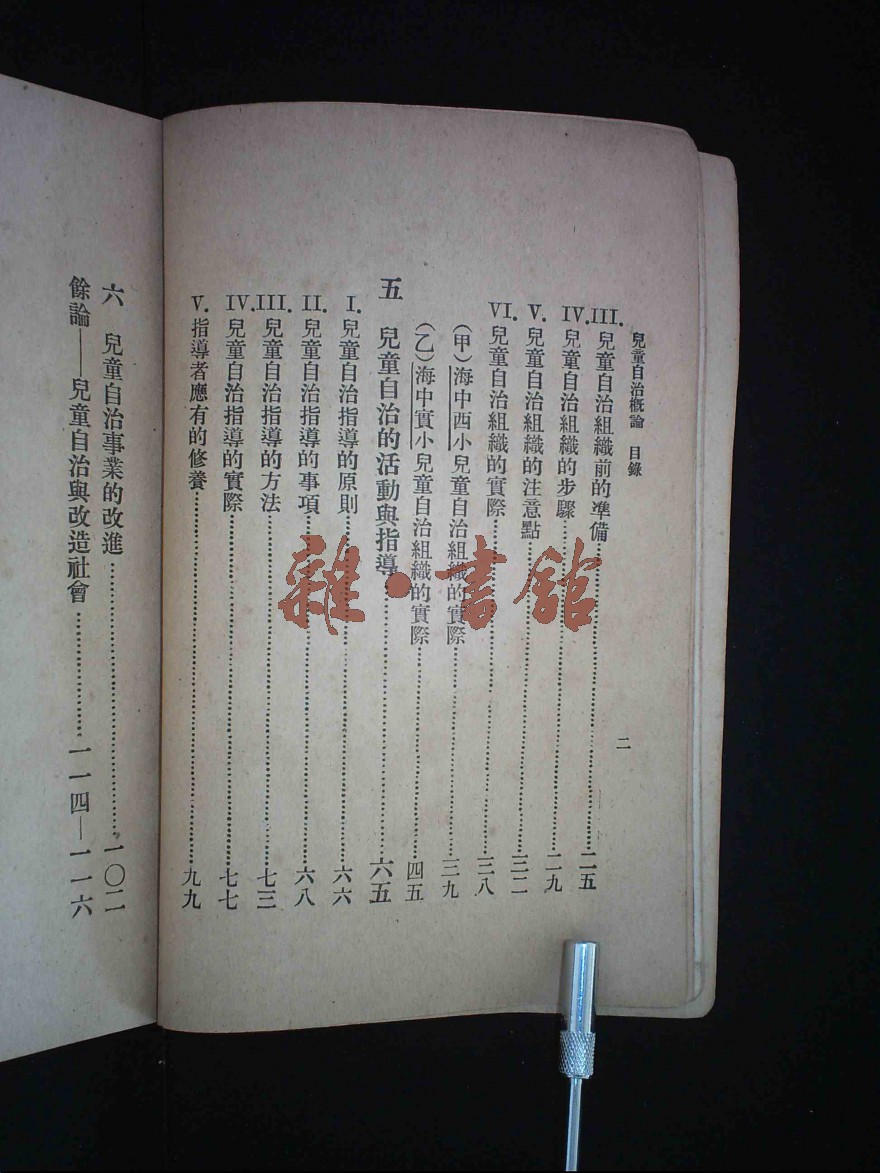 兒童自治概論　目錄
二
III.兒童自治組織前的準備……二五
IV.兒童自治組織的步驟……二九
V.兒童自治組織的注意點……三二
VI.兒童自治組織的實際……三八
(甲)海中西小兒童自治組織的實際……三九
(乙)海中實小兒童自治組織的實際……四五
五　兒童自治的活動與指導……六五
I.兒童自治指導的原則……六六
II.兒童自治指導的事項……六八
III.兒童自治指導的方法……七三
IV.兒童自治指導的實際……七七
V.指導者應有的修養……九九
六　兒童自治事業的改進……一〇二
餘論——兒童自治與改造社會……一一四—一一六
雜·書館